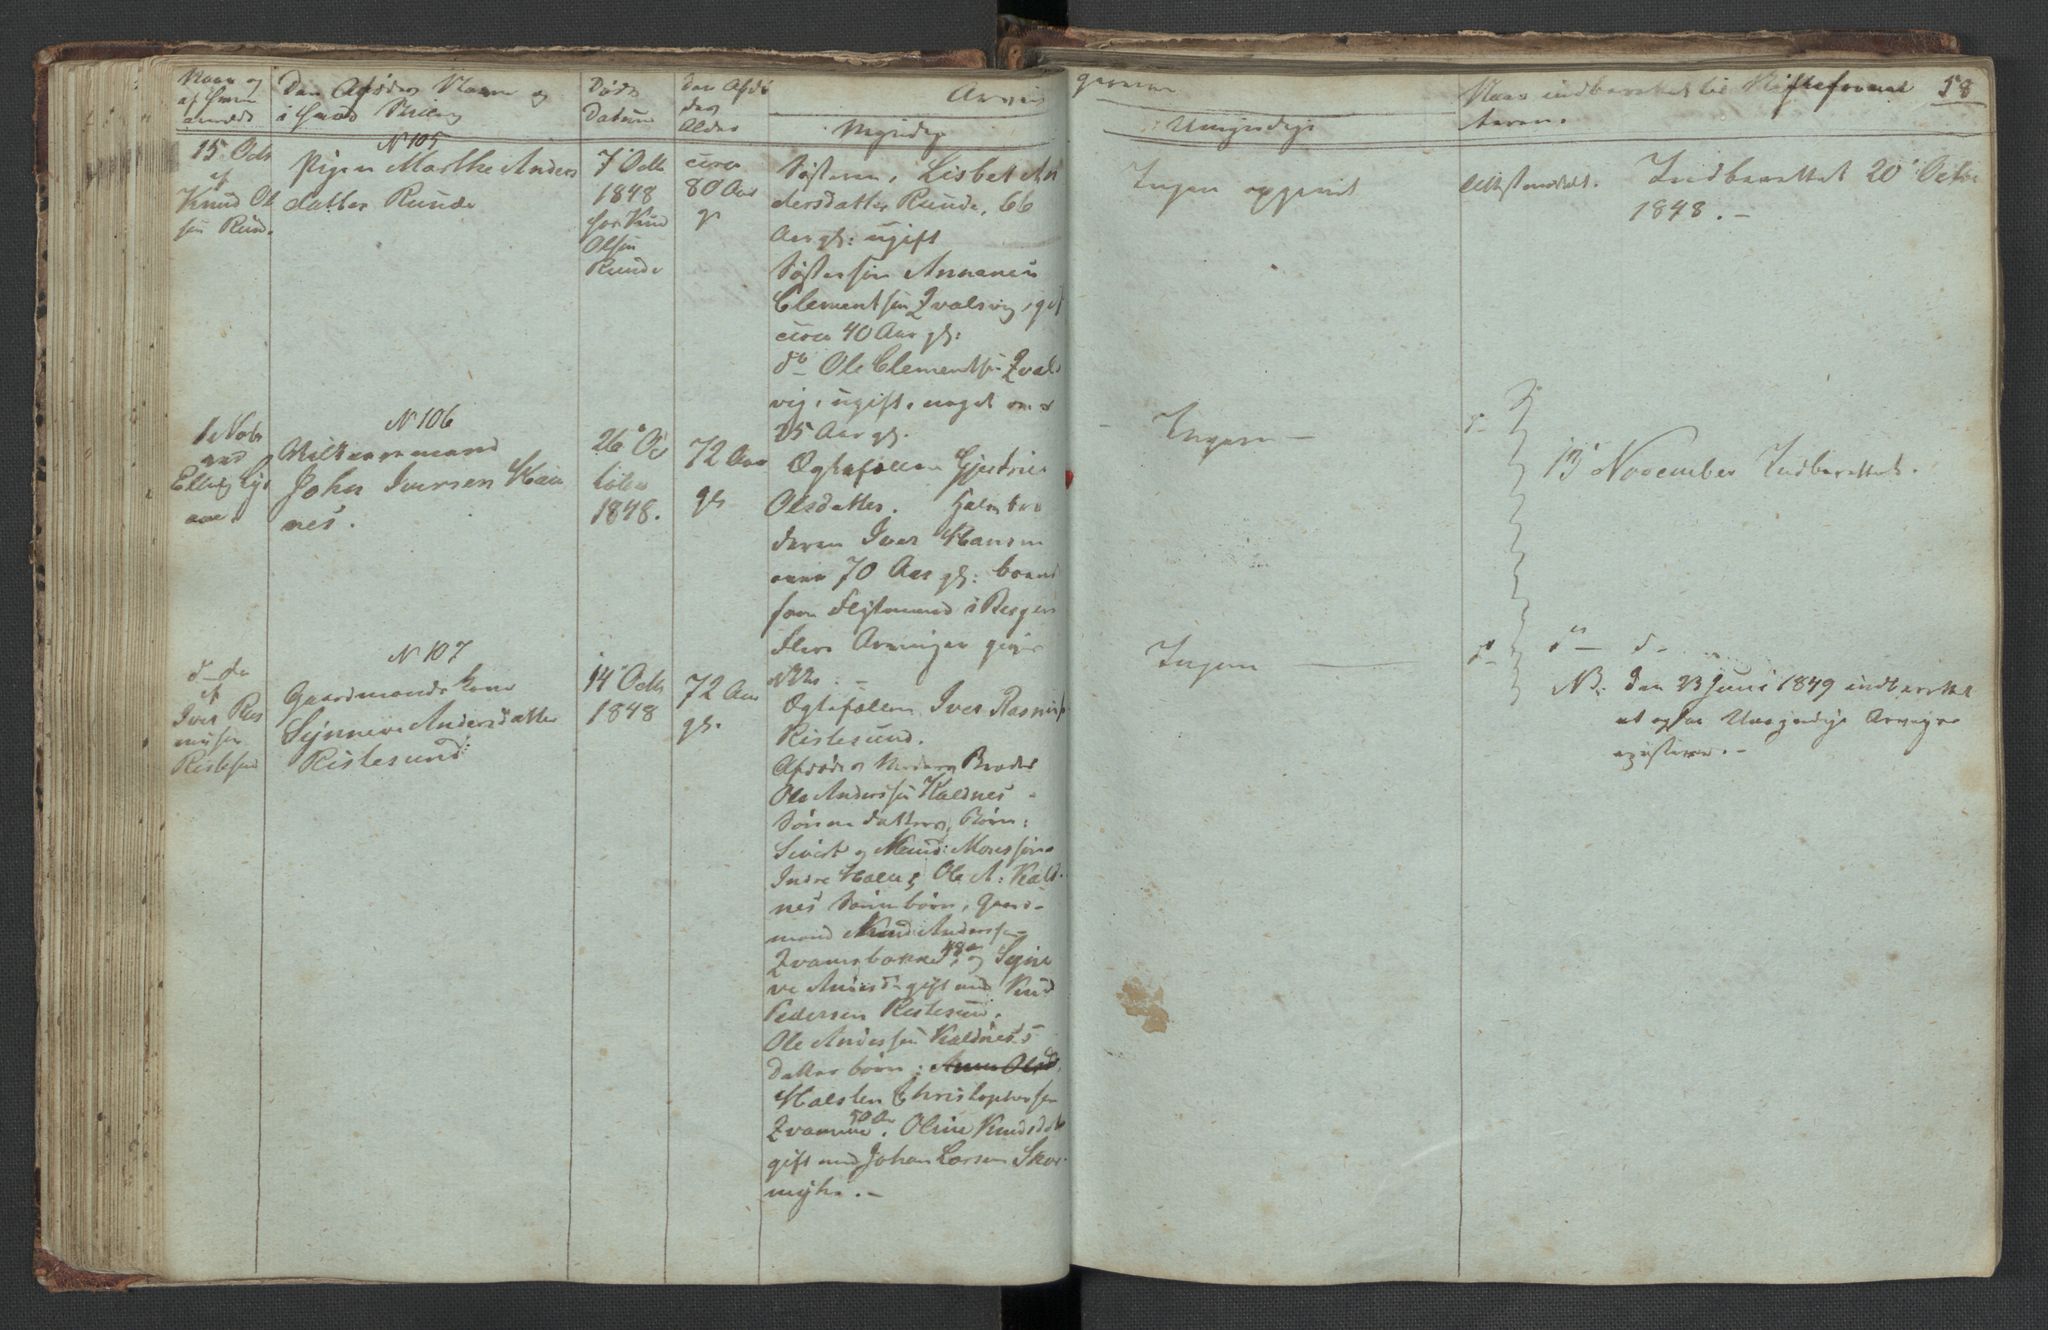 Naar og
af hvem
anmeldt
Den Afdødes Navn og
i hvad Stilling
Døds
Datum
Den Afdø
des
Alder
Arvin
gerne
Myndige
Umyndige
Naar indberettet til Skifteforvalt
teren.
58
N 105
15 Octr
af
Knud Ol
sen Runde
Pigen Marthe Anders
datter Runde
7' Octbr
1848
hos Knud
Olsen
Runde
circa
80 Aar
gl
Søsteren, Lisbet An
dersdatter Runde, 66
Aar gl: ugift
Søstersøn Ananias
Clementsen Qvalsvig, gift
circa 40 Aar gl:
do Ole Clementsen Qvals
vig, ugift, noget over
25 Aar gl.
Ingen opgivet
Indberettet 20' Octbr
1848. –
N 106
1 Novbr
ved
Elling
Vilkaarsmand
John Iversen Kald
nes.
26' Oc
tober
1848.
72 Aar
gl
Ægtefællen Gjertrud
Olsdatter. Halvbro
deren Iver Hansen
over 70 Aar gl: boende
som i Bergen
flere Arvinger gives
ikke. –
Ingen –
d–
13' November Indberettet.
N 107
d– do
af
Iver Ras
musen
Ristesund
Gaardmandskone
Synneve Andersdatter
Ristesund
14' Octbr
1848
72 Aar
gl.
Ægtefællen Iver Rasmus
Ristesund.
Afdødes Broder
Ole Anderssen Kaldnes
Sønnedatters Børn:
Sivert og Knud Monssøn
Indre Ole A: Kald
nes Sønnebørn, Gaard
mand Knud Anderssen
Qvamsbakke 48 Aar, og Synne
ve Andersd– gift med Knud
Pedersen Ristesund.
Ole Anderssen Kaldnes's
datterbørn: Anne Olsd
Halsten Christophersen
Qvamme 50 Aar. Oline Knudsdatter
gift med Johan Larsen Skor
myhr. –
Ingen –
d–
d– d–
NB: Den 23 Juni 1849 indberettet
at ogsaa Umyndige Arvinger
existerer. –